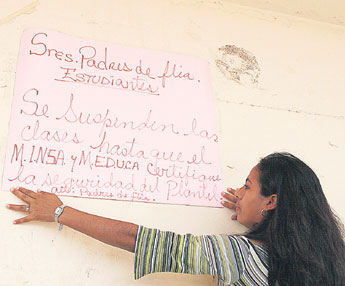 Sres: Padres de flia.
ESTUDIANTES
Se Suspenden las
clases hasta que el
M.INSA y M.EDUCA Certifique
la seguridad del Plantel
att: Padres de Flia.